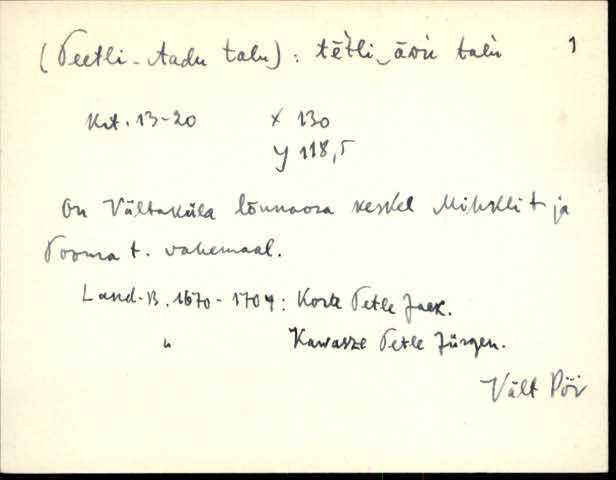 (Teetli-Aadu talu): tētli‿āðù talù 1
Krt. 13-20 x 130
y 118,5
On Vältaküla lõunaosa keskel Mihkli t ja
Tooma t. vahemaal.
Land-B. 1670-1704: Korte Tetle Jaek.
" Kawasze Tetle Jürgen.
Vält Pöi